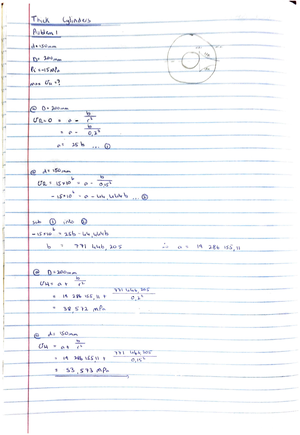 Thick Cylinders
Problem 1
d = 150mm
D = 200mm
Pi = 15 MPa
max σh = ?
@ D = 200mm
σR = 0 = a - b/r²
= a - b/0,2²
a = 25b ... ①
@ d = 150mm
σR = 15×10⁶ = a - b/0,15²
-15×10⁶ = a - 44,444b ... ②
sub ① into ②
-15×10⁶ = 25b - 44,444b
b = 771 446,205 ∴ a = 19 286 155,11
@ D = 200mm
σH = a + b/r²
= 19 286 155,11 + 771 446,205/0,2²
= 38,572 MPa
@ d = 150mm
σH = a + b/r²
= 19 286 155,11 + 771 446,205/0,15²
= 53,573 MPa